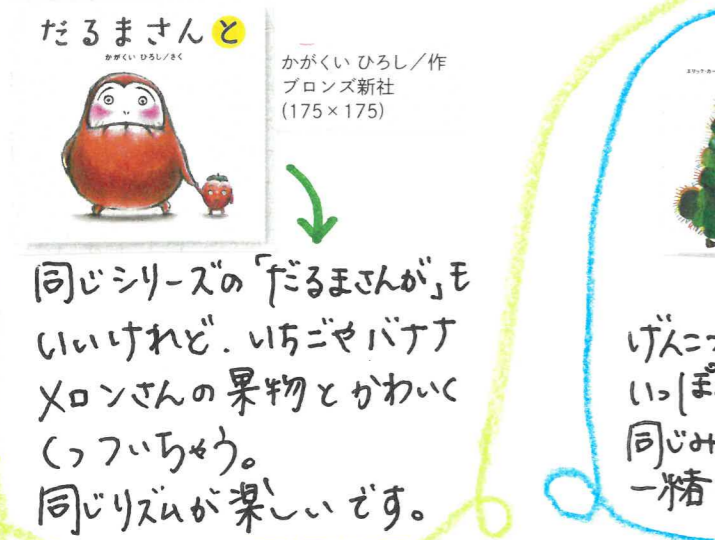 だるまさんと
かがくい ひろし/さく
かがくい ひろし／作
ブロンズ新社
(175×175)
同じシリーズの「だるまさんが」も
いいけれど、いちごやバナナ
メロンさんの果物とかわいく
くっついちゃう。
同じリズムが楽しいです。
げんこつ
いっぽ
同じみ
一緒